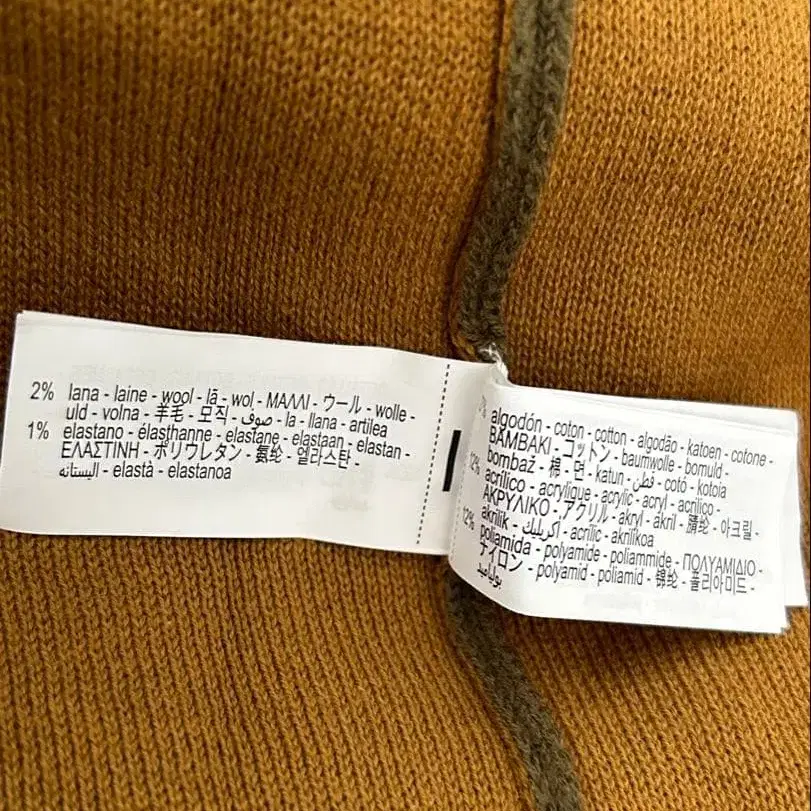 2% lana - laine - wool - lã - wol - ΜΑΛΛΙ - ウール - wolle -
uld - volna - 羊毛 - 모직 - صوف - la - llana - artilea
1% elastano - élasthanne - elastane - elastaan - elastan -
ΕΛΑΣΤΙΝΗ - ポリウレタン - 氨纶 - 엘라스탄 -
اليستانه - elastà - elastanoa
algodón - coton - cotton - algodão - katoen - cotone -
BAMBAKI - コットン - baumwolle - bomuld -
bombaž - 棉 - 면 - katun - قطن - cotó - kotoia
12% acrílico - acrylique - acrylic - acryl - acrilico -
ΑΚΡΥΛΙΚΟ - アクリル - akryl - akril - 腈纶 - 아크릴 -
akrilik - أكريليك - acrílic - akrilikoa
12% poliamida - polyamide - poliammide - ΠΟΛΥΑΜΙΔΙΟ -
ナイロン - polyamid - poliamid - 锦纶 - 폴리아미드 -
بولياميد